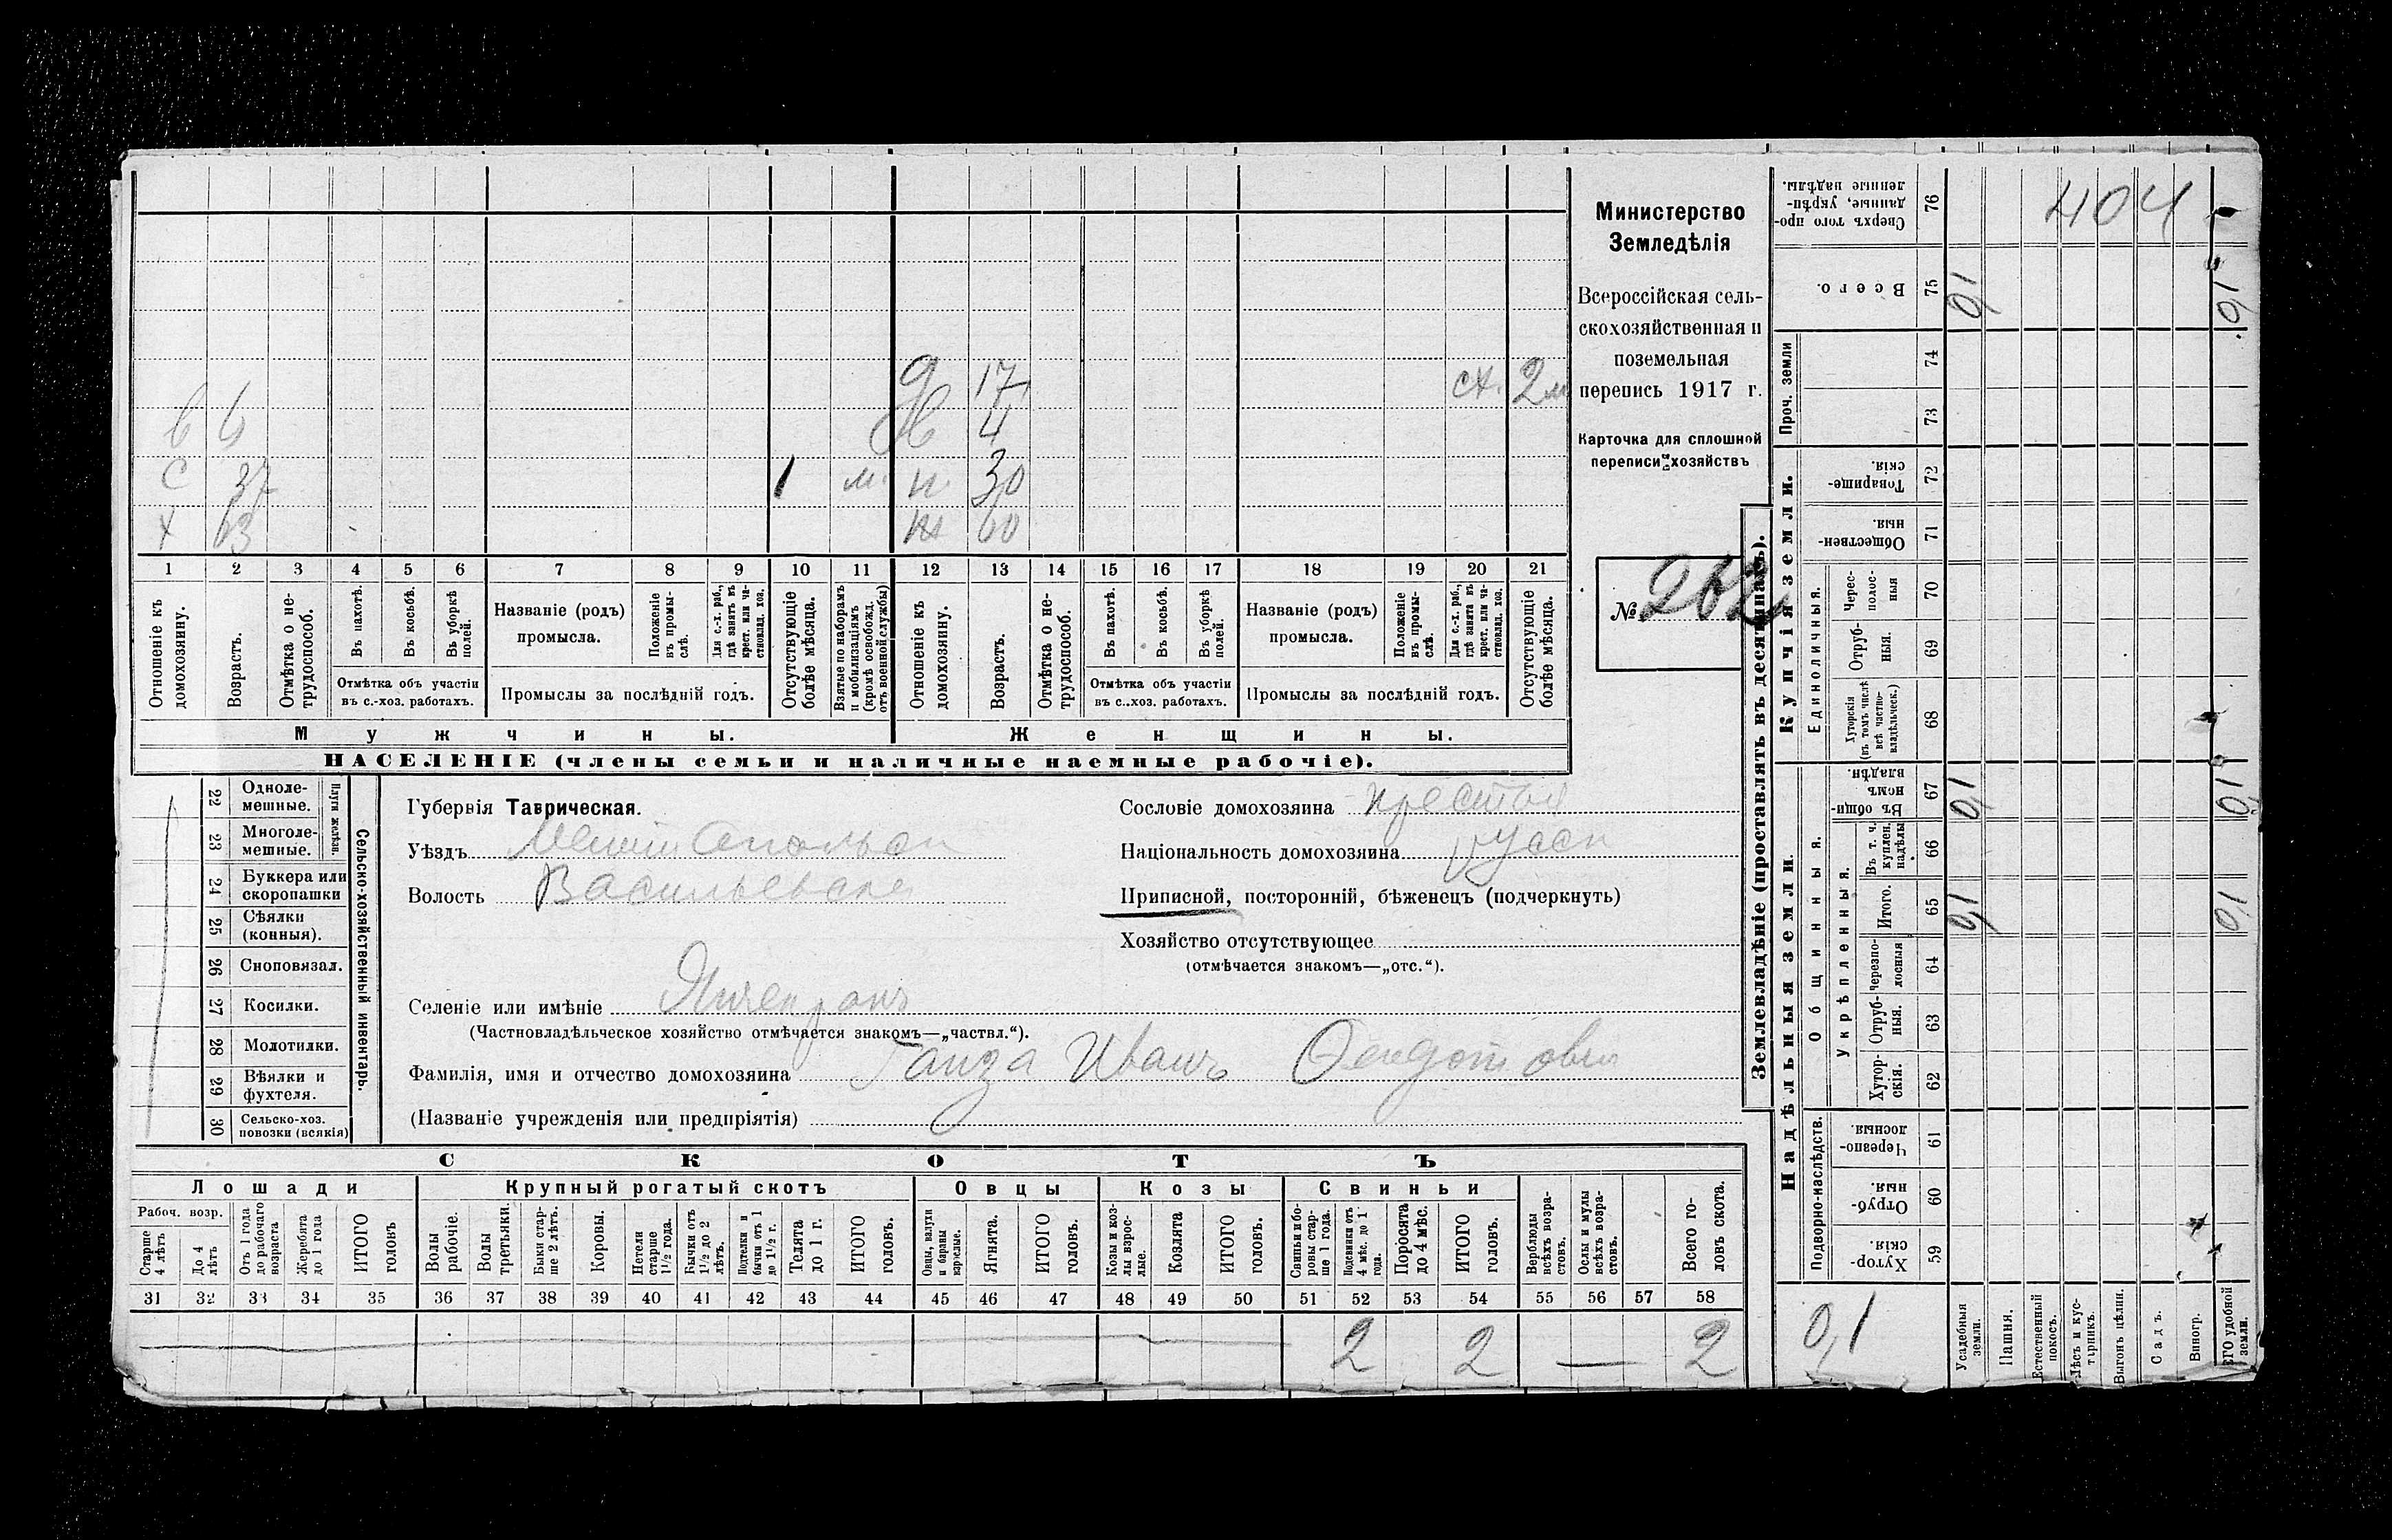 Министерство
Земледѣлія
Всероссійская сель-
скохозяйственная и
поземельная
перепись 1917 г.
Карточка для сплошной
переписи хозяйствъ
№ 262
404
д 17 ст. 2 м
в 6 4
с 37 1 м. н 30
х 63 ж 60
1 2 3 4 5 6 7 8 9 10 11 12 13 14 15 16 17 18 19 20 21
Отношеніе къ домохозяину.
Возрастъ.
Отмѣтка о не-трудоспособ.
Въ пахотѣ.
Въ косьбѣ.
Въ уборкѣ полей.
Отмѣтка объ участіи
въ с.-хоз. работахъ.
Названіе (родъ)
промысла.
Положеніе въ промы-слѣ.
Для с.-х. раб., гдѣ занятъ въ крест. или ча-стновлад. хоз.
Промыслы за послѣдній годъ.
Отсутствующіе болѣе мѣсяца.
Взятые по наборамъ и мобилизаціямъ (кромѣ освобожд. отъ военной службы)
Отношеніе къ домохозяину.
Возрастъ.
Отмѣтка о не-трудоспособ.
Въ пахотѣ.
Въ косьбѣ.
Въ уборкѣ полей.
Отмѣтка объ участіи
въ с..хоз. работахъ.
Названіе (родъ)
промысла.
Положеніе въ промы-слѣ.
Для с.-х. раб., гдѣ занята въ крест. или ча-стновлад. хоз.
Промыслы за послѣдній годъ.
Отсутствующіе болѣе мѣсяца.
Мужчины.
Женщины.
НАСЕЛЕНІЕ (члены семьи и наличные наемные рабочіе).
Сельско-хозяйственный инвентарь.
Плуги желѣзн.
22 Одноле-мешные.
23 Многоле-мешные.
24 Буккера или скоропашки
25 Сѣялки (конныя).
26 Сноповязал.
27 Косилки.
28 Молотилки.
29 Вѣялки и фухтеля.
30 Сельско-хоз. повозки (всякія)
Губернія Таврическая.
Уѣздъ Мелитопольск
Волость Васильевске
Селеніе или имѣніе
(Частновладѣльческое хозяйство отмѣчается знакомъ—„частвл.“).
Фамилія, имя и отчество домохозяина Ганза Иванъ Федотовъ
(Названіе учрежденія или предпріятія)
Сословіе домохозяина крестьян
Національность домохозяина русск
Приписной, посторонній, бѣженецъ (подчеркнуть)
Хозяйство отсутствующее
(отмѣчается знакомъ—„отс.“).
СКОТЪ
Лошади
Крупный рогатый скотъ
Овцы
Козы
Свиньи
Рабоч. возр.
Старше 4 лѣтъ
До 4 лѣтъ
Отъ 1 года до рабочаго возраста
Жеребята до 1 года
ИТОГО головъ
Волы рабочіе.
Волы третьяки.
Быки стар-ше 2 лѣтъ.
Коровы.
Нетели старше 1½ года.
Бычки отъ 1½ до 2 лѣтъ.
Подтелки и бычки отъ 1 до 1½ г.
Телята до 1 г.
ИТОГО головъ.
Овцы, валухи и бараны взрослые.
Ягнята.
ИТОГО головъ.
Козы и коз-лы взрос-лые.
Козлята
ИТОГО головъ.
Свиньи и бо-ровы стар-ше 1 года.
Подсвинки отъ 4 мѣс. до 1 года.
Поросята до 4 мѣс.
ИТОГО головъ.
Верблюды всѣхъ возра-стовъ.
Ослы и мулы всѣхъ возра-стовъ.
Всего го-ловъ скота.
31 32 33 34 35 36 37 38 39 40 41 42 43 44 45 46 47 48 49 50 51 52 53 54 55 56 57 58
2 2 — 2
Землевладѣніе (проставлять въ десятинахъ).
Надѣльныя земли.
Купчія земли.
Подворно-наслѣдств.
Общинныя.
Укрѣпленныя.
Единоличныя.
Проч. земли
59 Хутор-скія.
60 Отруб-ныя.
61 Черезпо-лосныя.
62 Хутор-скія.
63 Отруб-ныя.
64 черезпо-лосныя
65 Итого.
66 Въ т. ч. куплен. надѣлы
67 Въ общин-номъ владѣн.
68 Хуторскія (въ томъ числѣ всѣ частно-владѣльческ.)
69 Отруб-ныя.
70 Черес-полос-ныя
71 Обществен-ныя.
72 Товарище-скія.
73
74
75 Всего.
76 Сверхъ того про-данные, укрѣп-ленные надѣлы.
0,1
Усадебныя земли.
Пашня.
Естественный покосъ.
Лѣсъ и кус-тарникъ.
Выгонъ цѣлин.
Садъ.
Виногр.
ЕГО удобной земли.